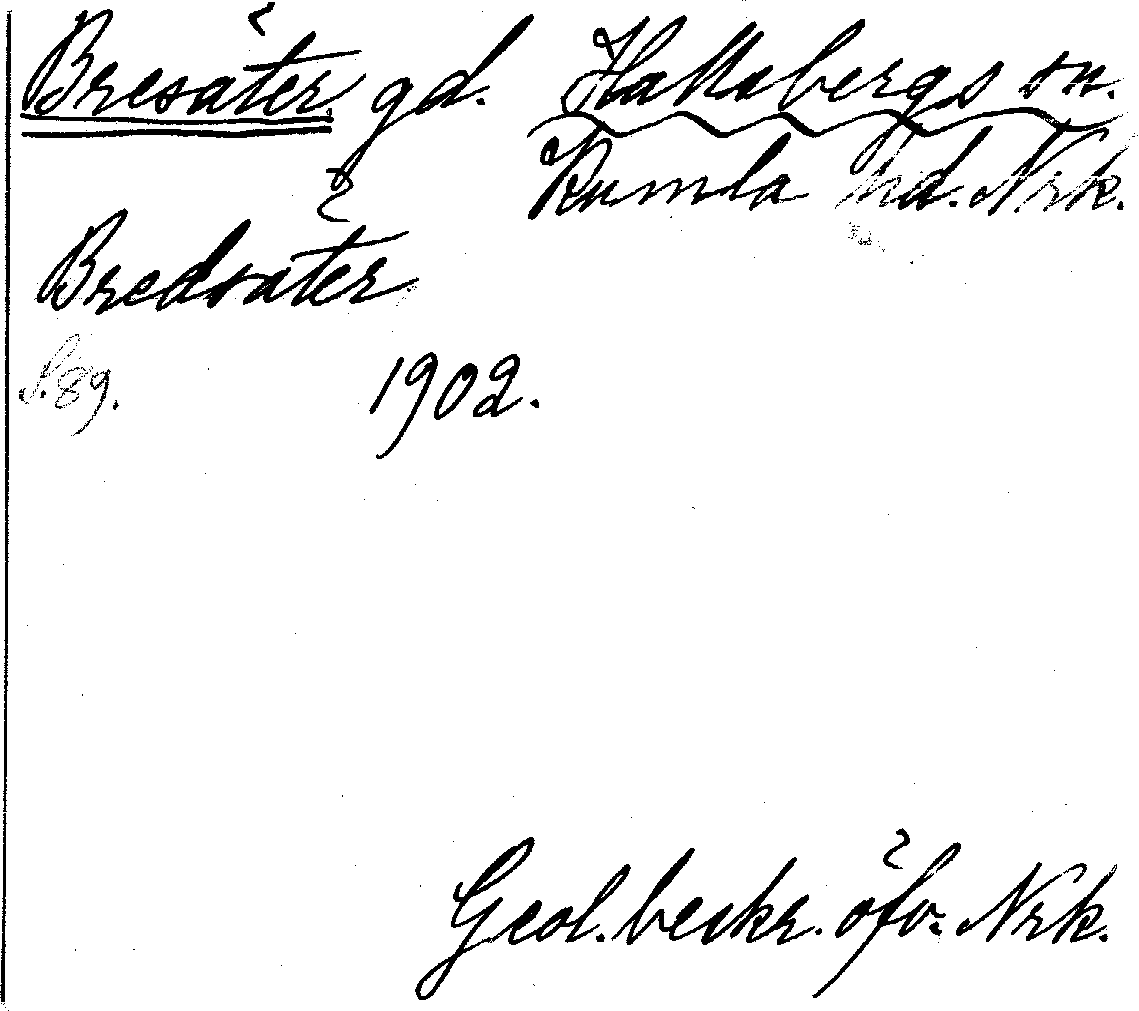 Bresäter gd. Hallsbergs sn.
Kumla hd. Nrk.
Bredsäter
S. 89. 1902.
Geol. beskr. öfv. Nrk.